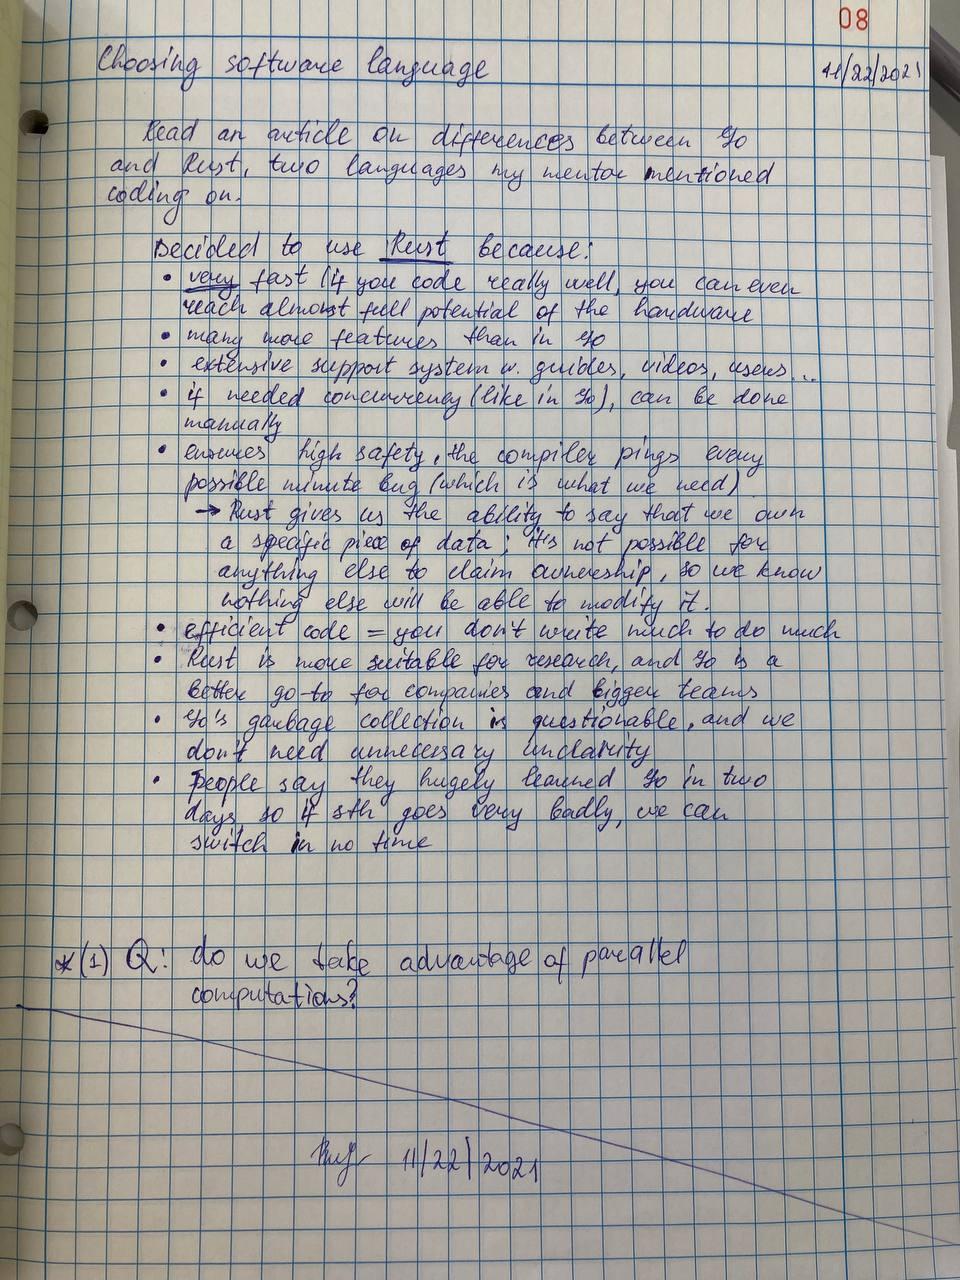 08
Choosing software language 11/22/2021
Read an article on differences between Go
and Rust, two languages my mentor mentioned
coding on.
Decided to use Rust because:
• very fast (if you code really well, you can even
reach almost full potential of the hardware
• many more features than in Go
• extensive support system w. guides, videos, users...
• if needed concurrency (like in Go), can be done
manually
• ensures high safety, the compiler pings every
possible minute bug (which is what we need)
→ Rust gives us the ability to say that we own
a specific piece of data; it's not possible for
anything else to claim ownership, so we know
nothing else will be able to modify it.
• efficient code = you don't write much to do much
• Rust is more suitable for research, and Go is a
better go-to for companies and bigger teams
• Go's garbage collection is questionable, and we
don't need unnecessary unclarity
• People say they hugely learned Go in two
days, so if sth goes very badly, we can
switch in no time
*(1) Q: do we take advantage of parallel
computations?
11/22/2021